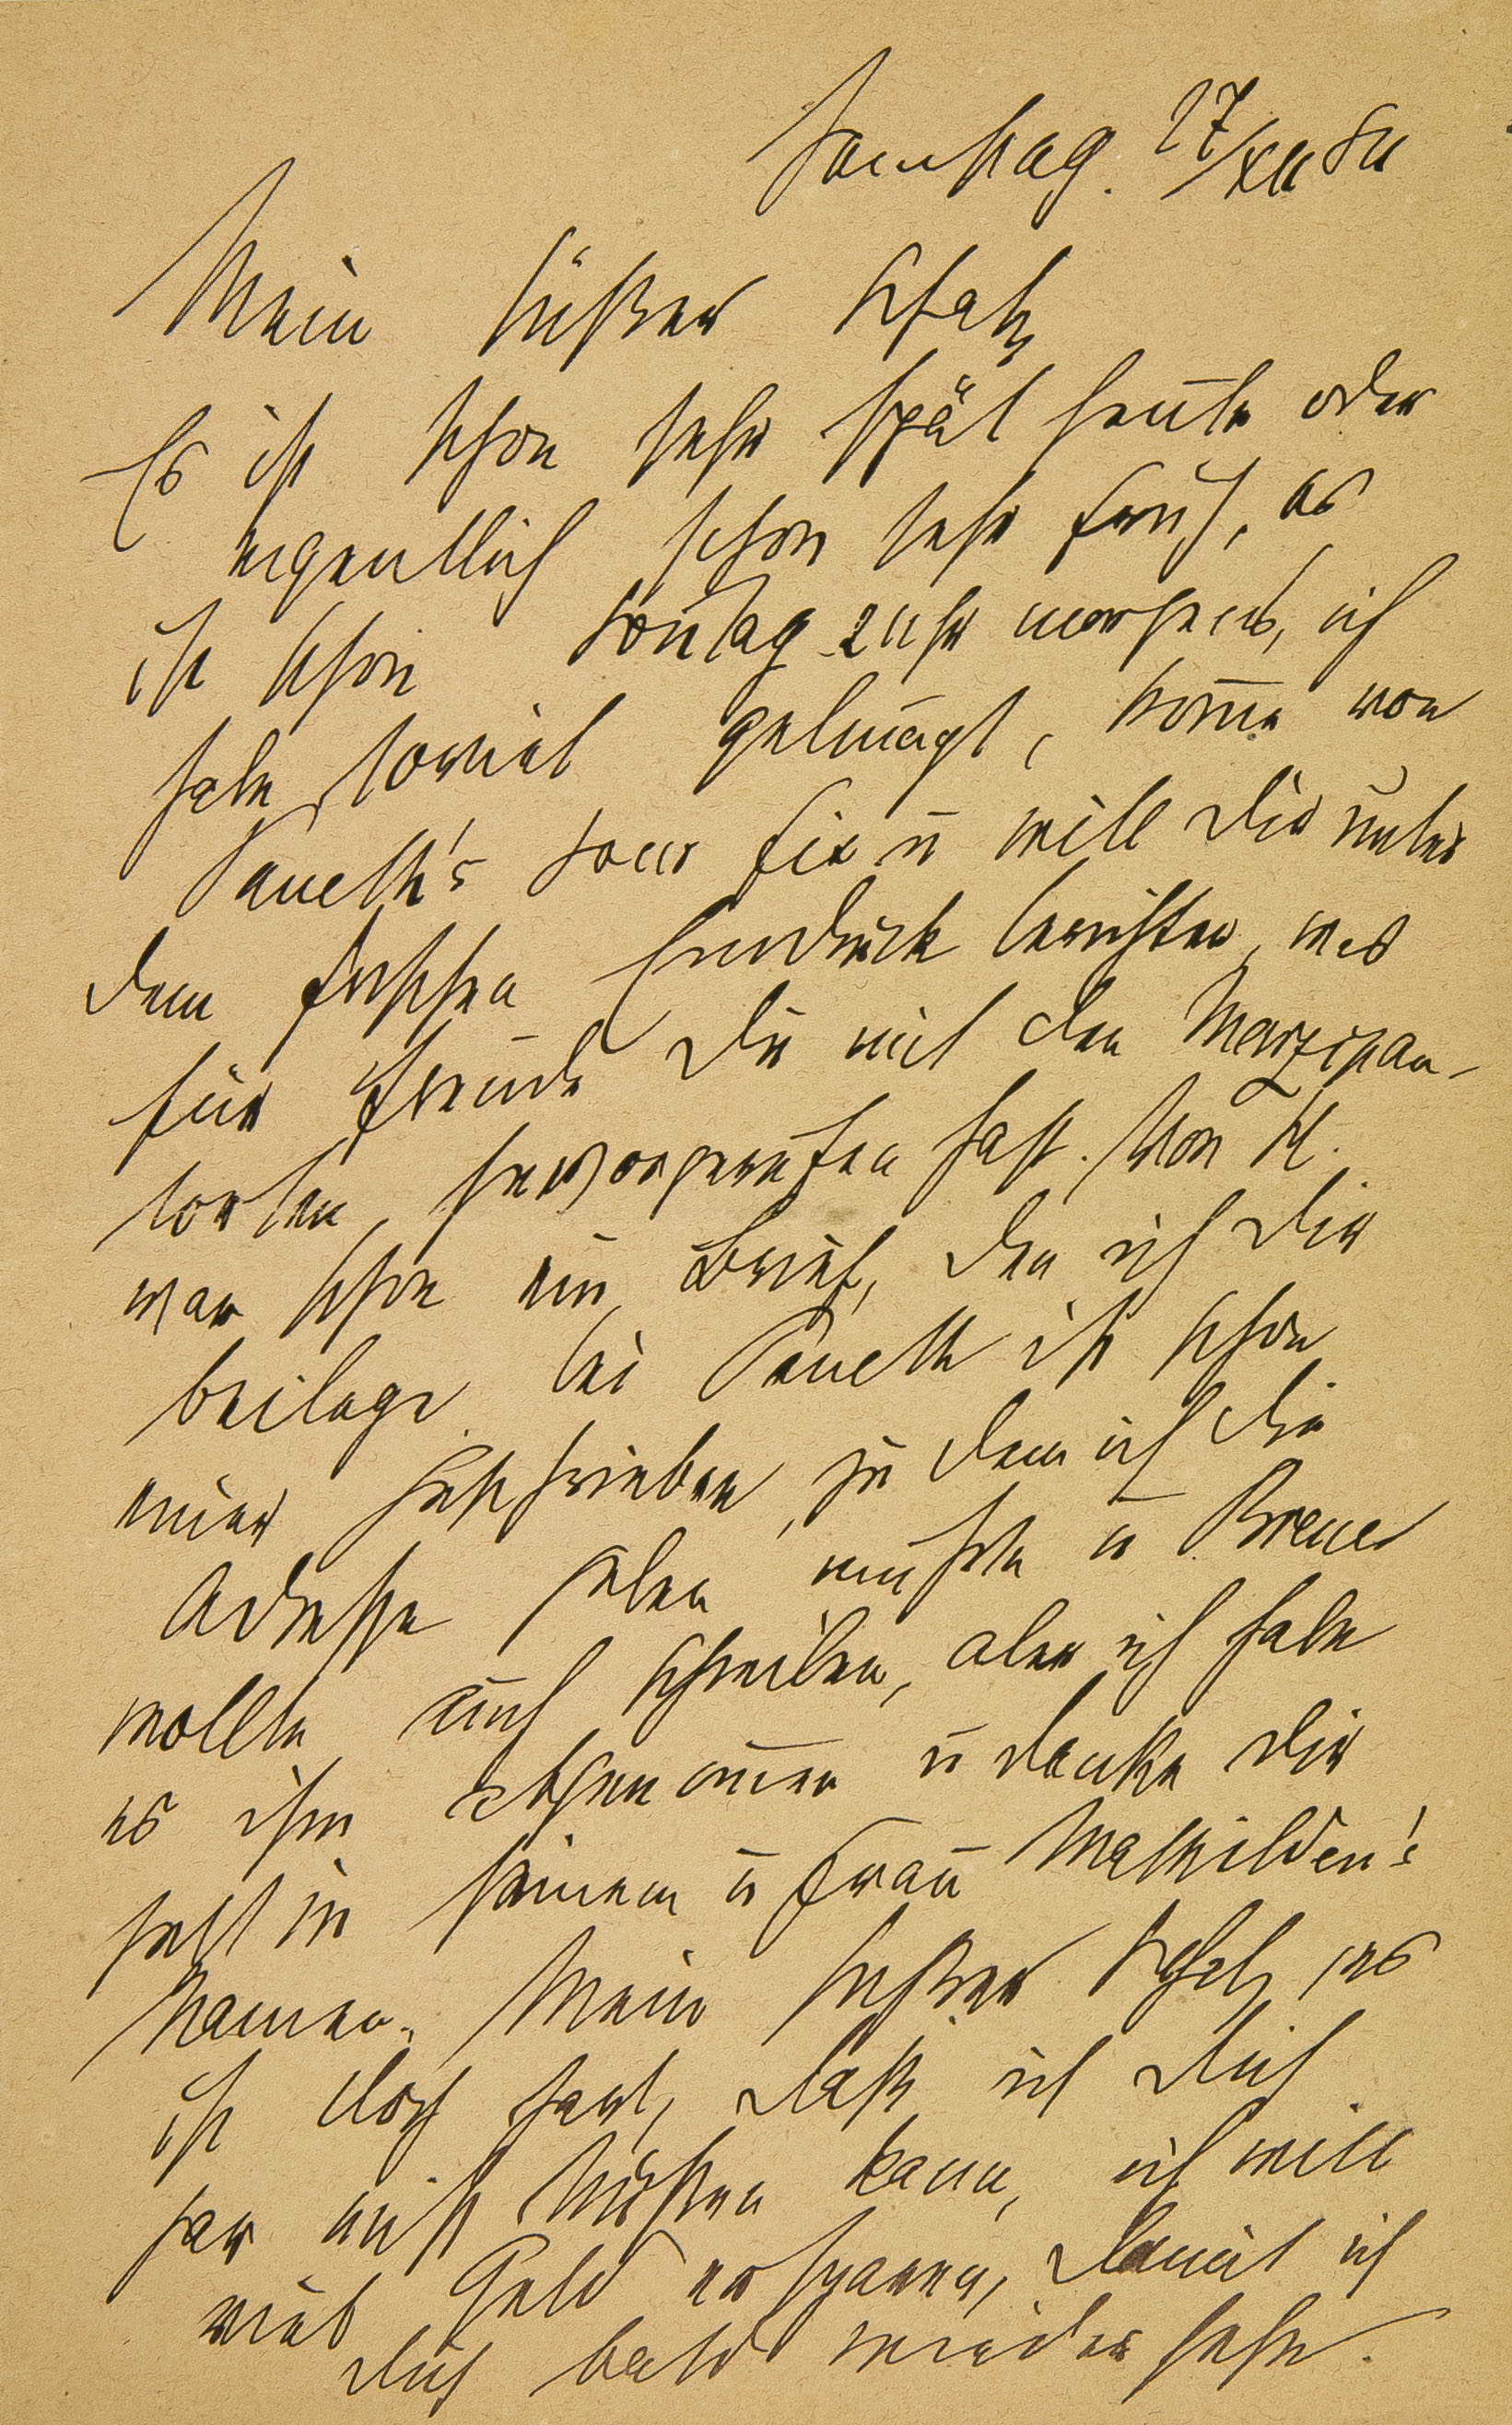 Samstag. 27/XII 84
Mein süßer Schatz
Es ist schon sehr spät heute oder
eigentlich schon sehr früh, es
ist schon Sontag 2 Uhr morgens, ich
habe soviel gelumpt, kome von
Paneth's jour fix u will Dir unter
dem frischen Eindruck berichten, was
für Freude Du mit den Marzipan-
torten hervorgerufen hast. Von K.
war schon ein Brief, den ich Dir
beilege. Bei Paneth ist schon
einer geschrieben, zu dem ich die
Adresse geben mußte u Breuer
wollte auch schreiben, aber ich habe
es ihm abgenomen u danke Dir
jetzt in seinem u Frau Mathilden's
Namen. Mein süßer Schatz, es
ist doch hart, daß ich Dich
gar nicht küßen kann, ich will
viel Geld ersparen, damit ich
Dich bald wieder sehe.